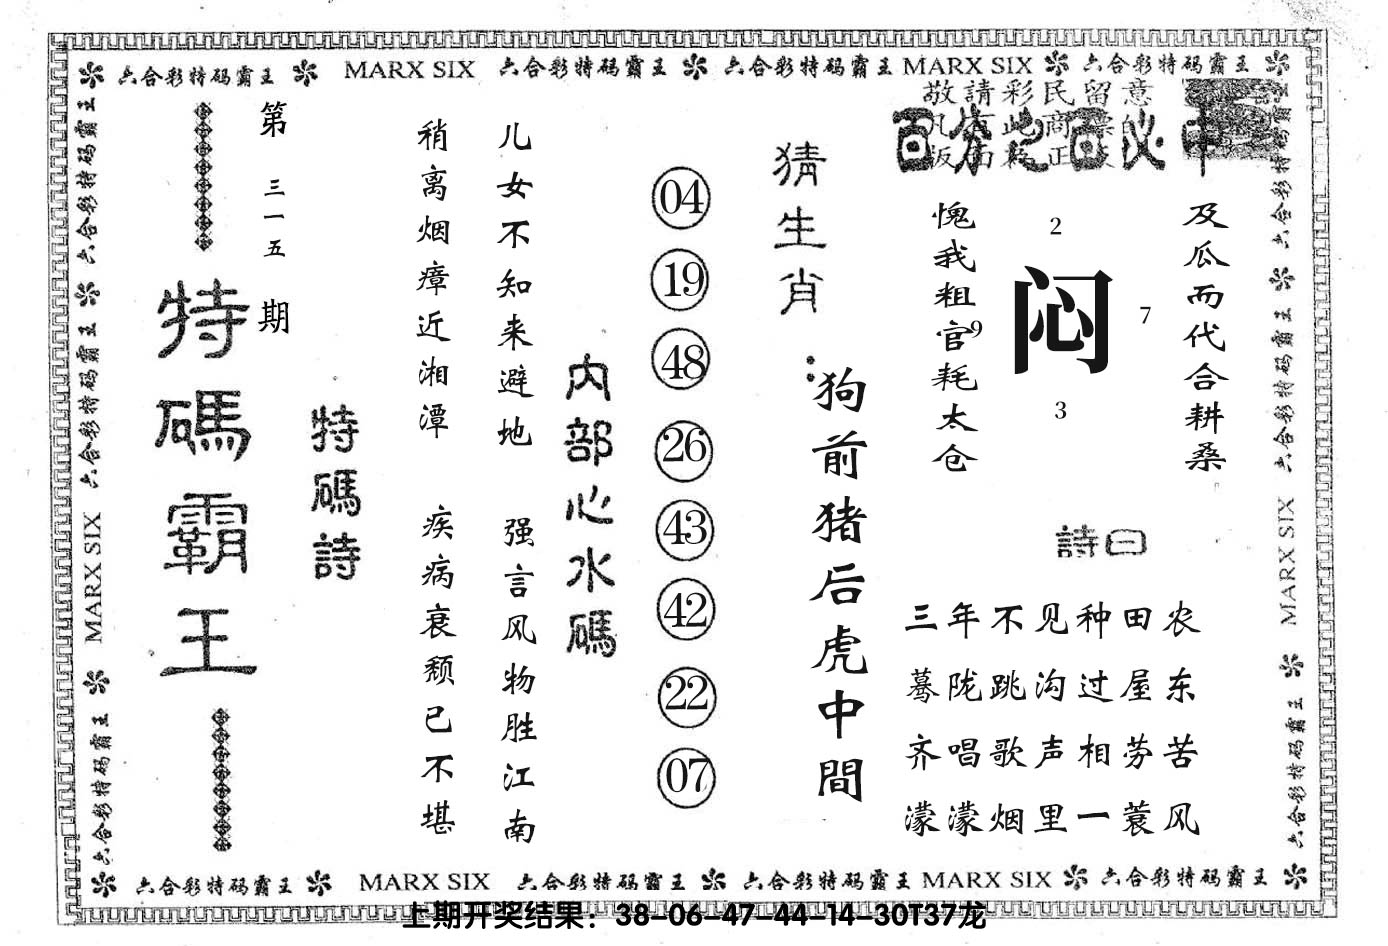 六合彩特码霸王 MARX SIX 六合彩特码霸王 六合彩特码霸王 MARX SIX 六合彩特码霸王
敬請彩民留意
百分之百必中
及瓜而代合耕桑
愧我粗官耗太仓
2
9
闷
7
3
詩曰
三年不见种田农
蓦陇跳沟过屋东
齐唱歌声相劳苦
濛濛烟里一蓑风
猜生肖：
狗前猪后虎中間
04
19
48
26
43
42
22
07
内部心水碼
儿女不知来避地
强言风物胜江南
稍离烟瘴近湘潭
疾病衰颓已不堪
特碼詩
第三一五期
特碼霸王
六合彩特码霸王 六合彩特码霸王 MARX SIX 六合彩特码霸王
六合彩特码霸王 六合彩特码霸王 MARX SIX 六合彩特码霸王
六合彩特码霸王 MARX SIX 六合彩特码霸王 六合彩特码霸王 MARX SIX 六合彩特码霸王
上期开奖结果：38-06-47-44-14-30T37龙